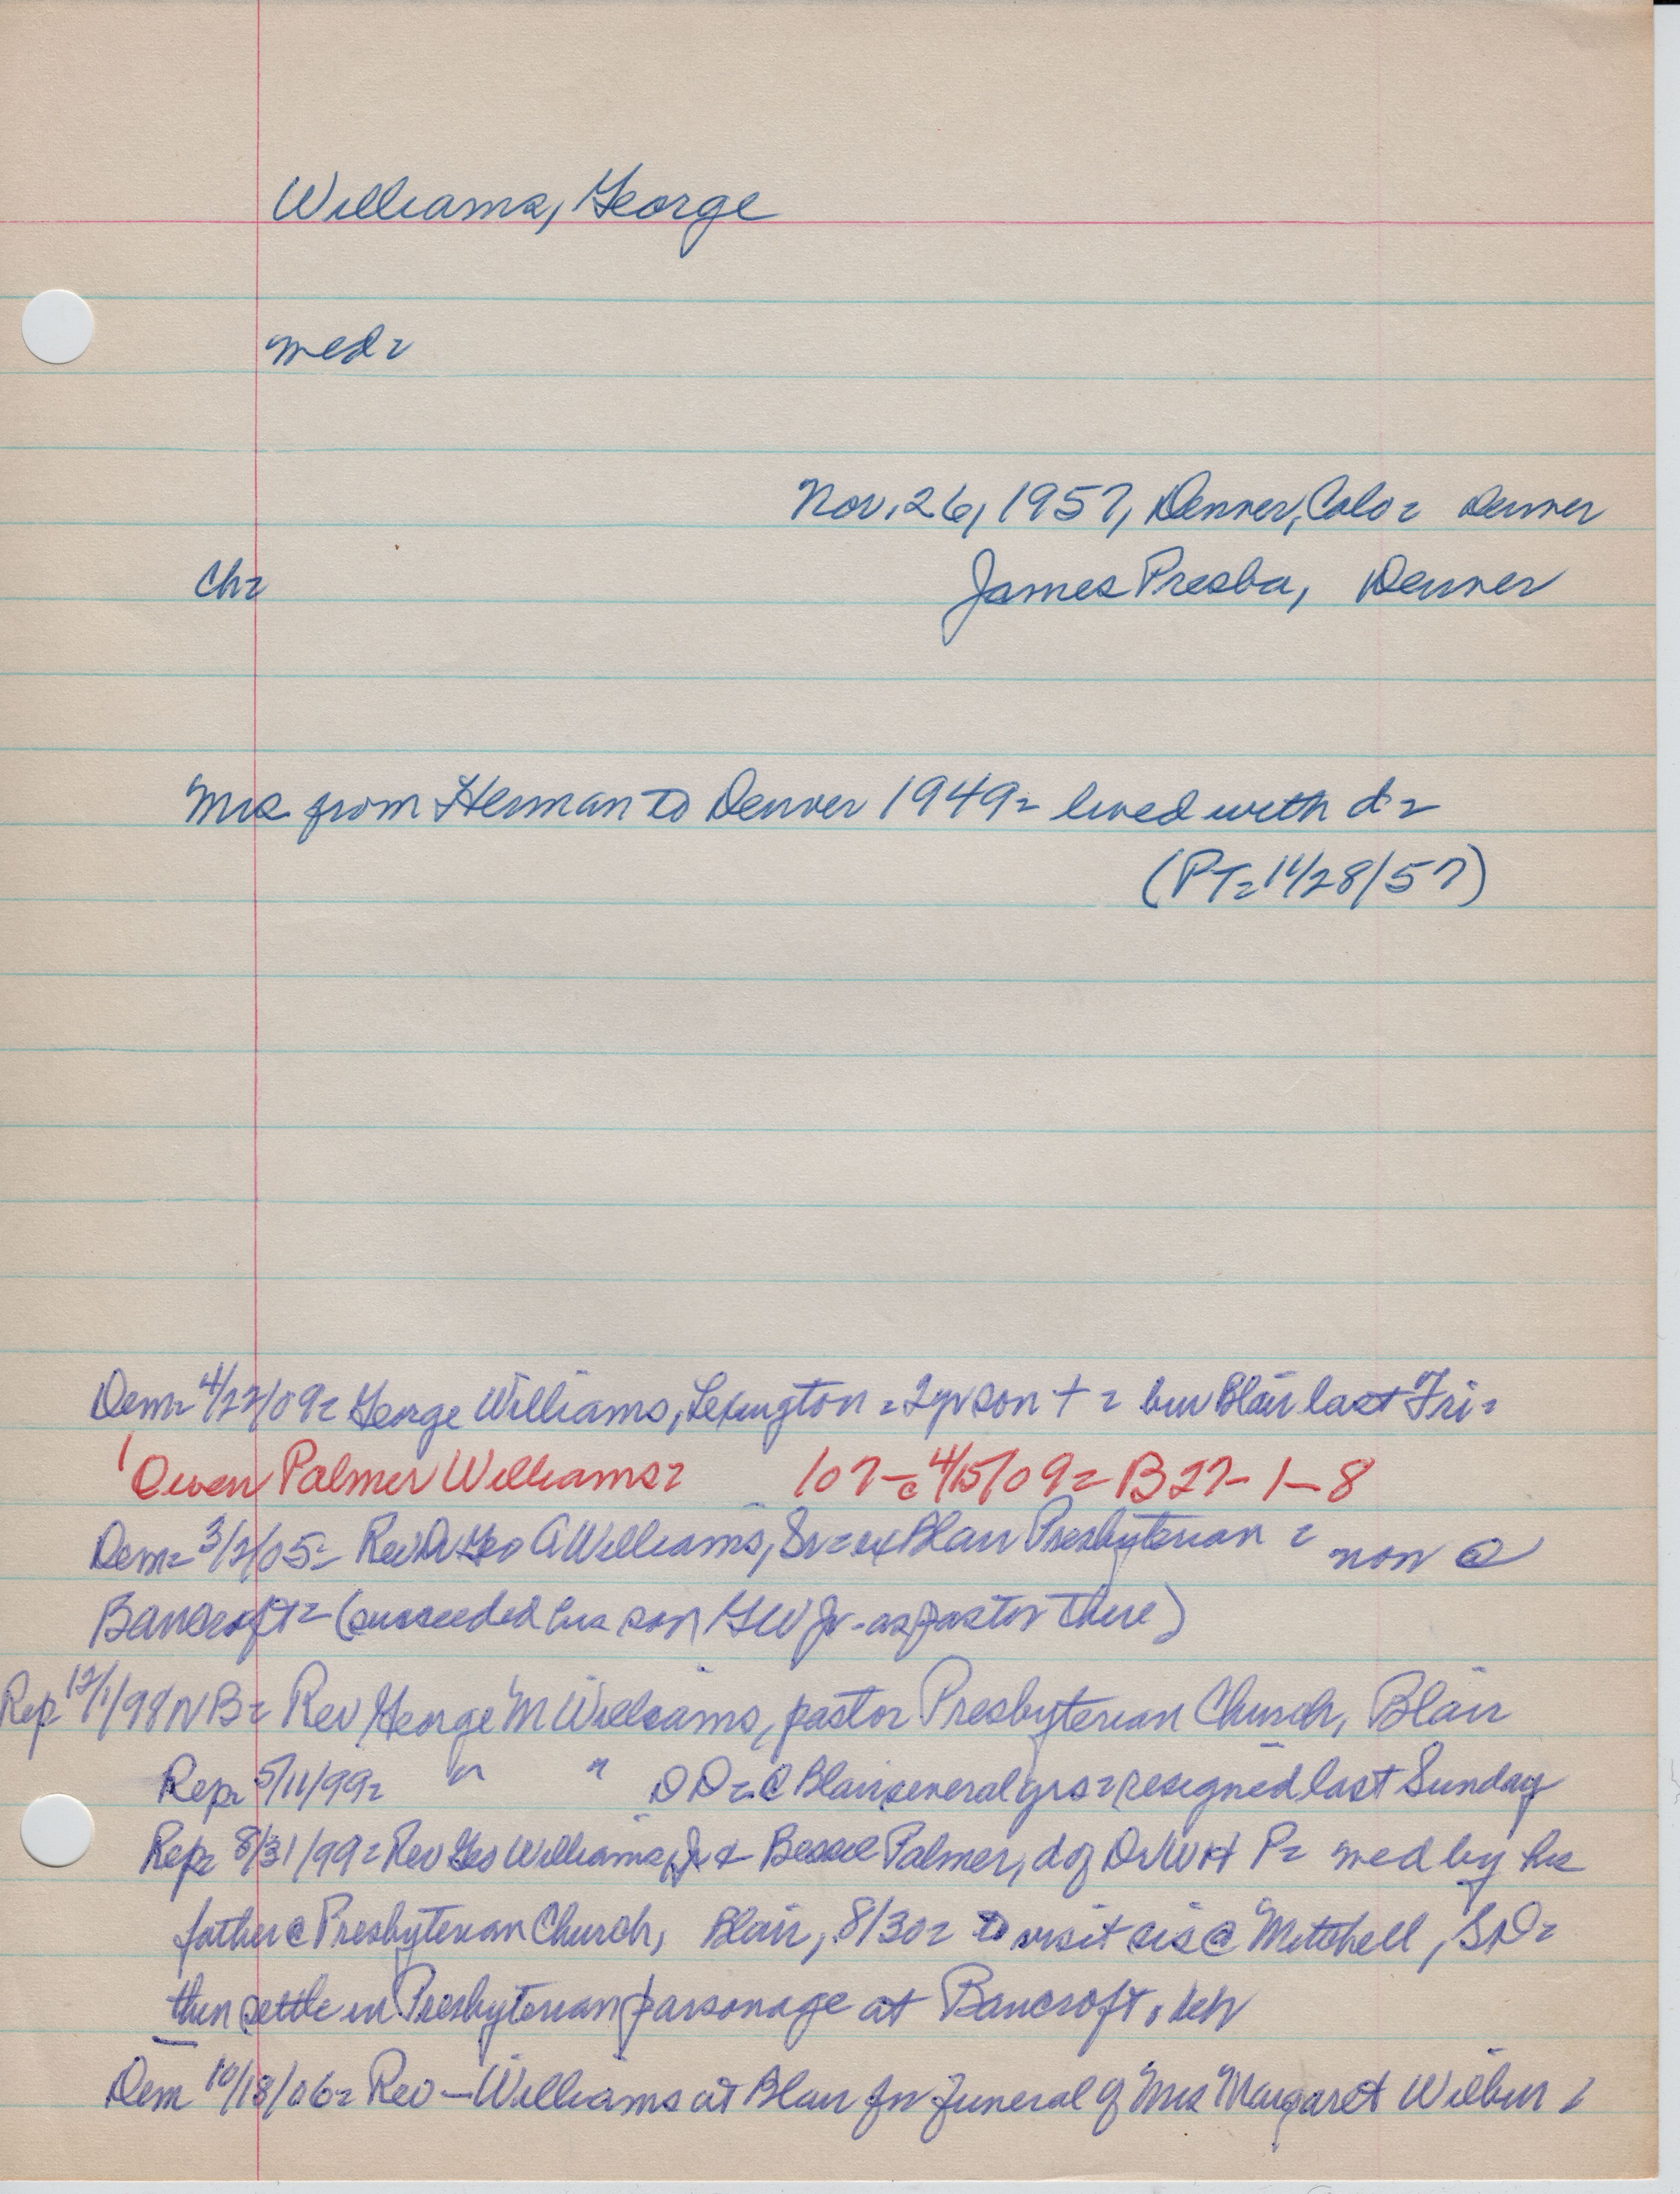 Williams, George
med =
Nov. 26, 1957, Denver, Colo = Denver
Ch =
James Presba, Denver
Mrs from Herman to Denver 1949 = lived with d =
(PT = 11/28/57)
Dem = 4/22/09 = George Williams, Lexington = 2 yr son + = bur Blair last Fri =
Owen Palmer Williams = 107 - c 4/15/09 = B27 - 1 - 8
Dem = 3/2/05 = Rev Dr Geo A Williams, Sr = ex Blair Presbyterian = now @
Bancroft = (succeeded his son GW Jr - as pastor there)
Rep 12/1/98 NB = Rev George M Williams, pastor Presbyterian Church, Blair
Rep = 5/11/99 = " " DD = @ Blair several yrs = resigned last Sunday
Rep = 8/31/99 = Rev Geo Williams, Jr & Bessie Palmer, d of Dr WH P = med by his
father @ Presbyterian Church, Blair, 8/30 = to visit sis @ Mitchell, SD =
then settle in Presbyterian parsonage at Bancroft,
Dem 10/18/06 = Rev — Williams at Blair for funeral of Mrs Margaret Wilbur